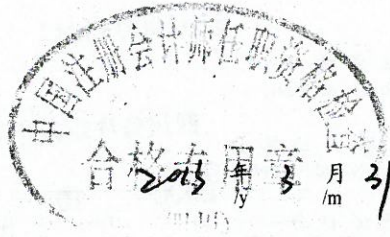 中国注册会计师任职资格检查
合格专用章
2013 年 3 月 31
/y /m